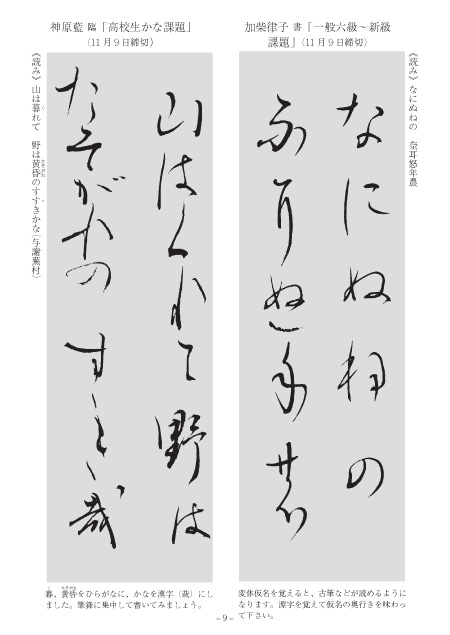 加柴律子 書「一般六級～新級
課題」（11月9日締切）
《読み》なにぬねの 奈耳怒年農
なにぬねの
奈耳怒年農
変体仮名を覚えると、古筆などが読めるように
なります。源字を覚えて仮名の奥行きを味わっ
て下さい。
神原藍 臨「高校生かな課題」
（11月9日締切）
山はくれて野は
たそがれのすゝき哉
《読み》山は暮れて 野は黄昏のすすきかな（与謝蕪村）
暮、黄昏をひらがなに、かなを漢字（哉）にし
ました。筆鋒に集中して書いてみましょう。
－9－